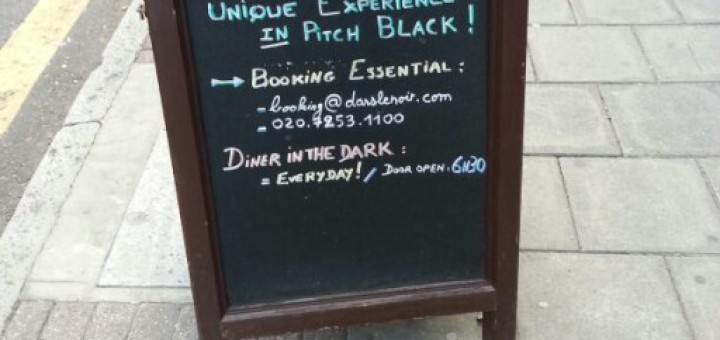 UNIQUE EXPERIENCE
IN PITCH BLACK !
→ BOOKING ESSENTIAL :
- booking@danslenoir.com
- 020.7253.1100
DINER IN THE DARK :
= EVERYDAY! / DOOR OPEN : 6H30